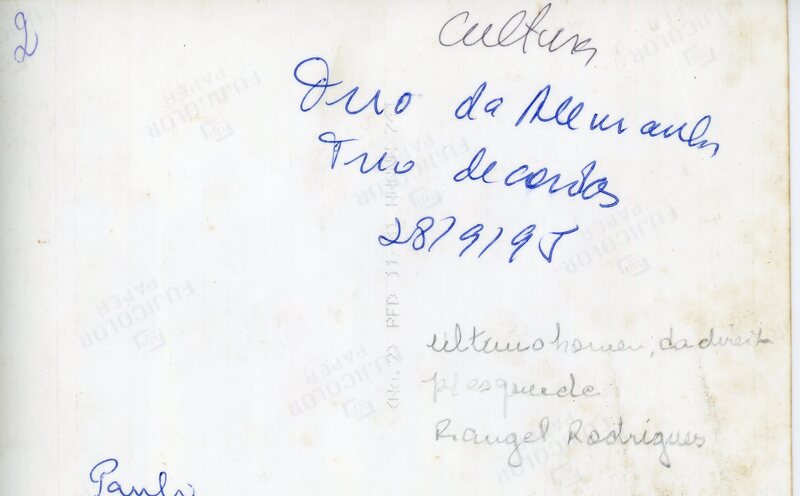 2
Cultura
Duo da Alemanha
Trio de cordas
28/9/95
FUJICOLOR
PAPER
FUJICOLOR
PAPER
FUJICOLOR
PAPER
FUJICOLOR
PAPER
FUJICOLOR
PAPER
FUJICOLOR
PAPER
último homem, da direita
p/ esquerda
Rangel Rodrigues
Paulo